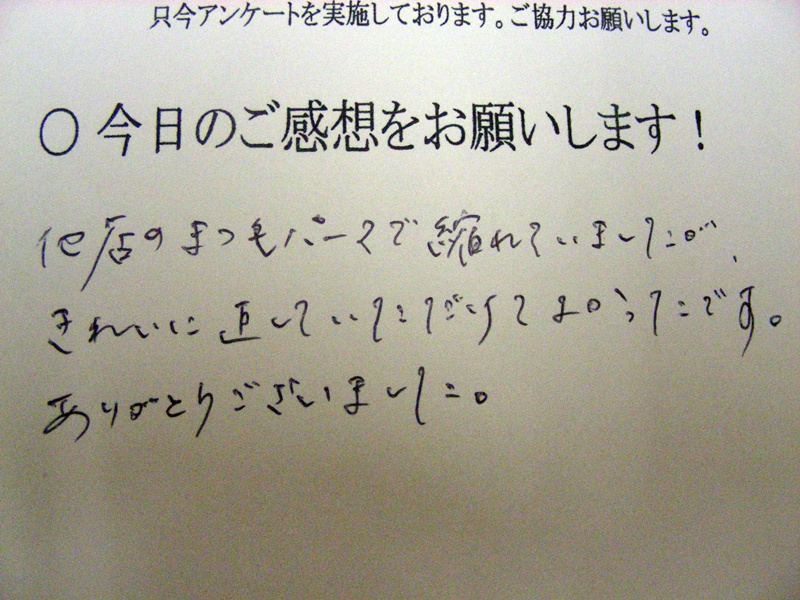 只今アンケートを実施しております。ご協力お願いします。
○今日のご感想をお願いします!
他店のまつ毛パーマで縮れていましたが、
きれいに直していただけてよかったです。
ありがとうございました。